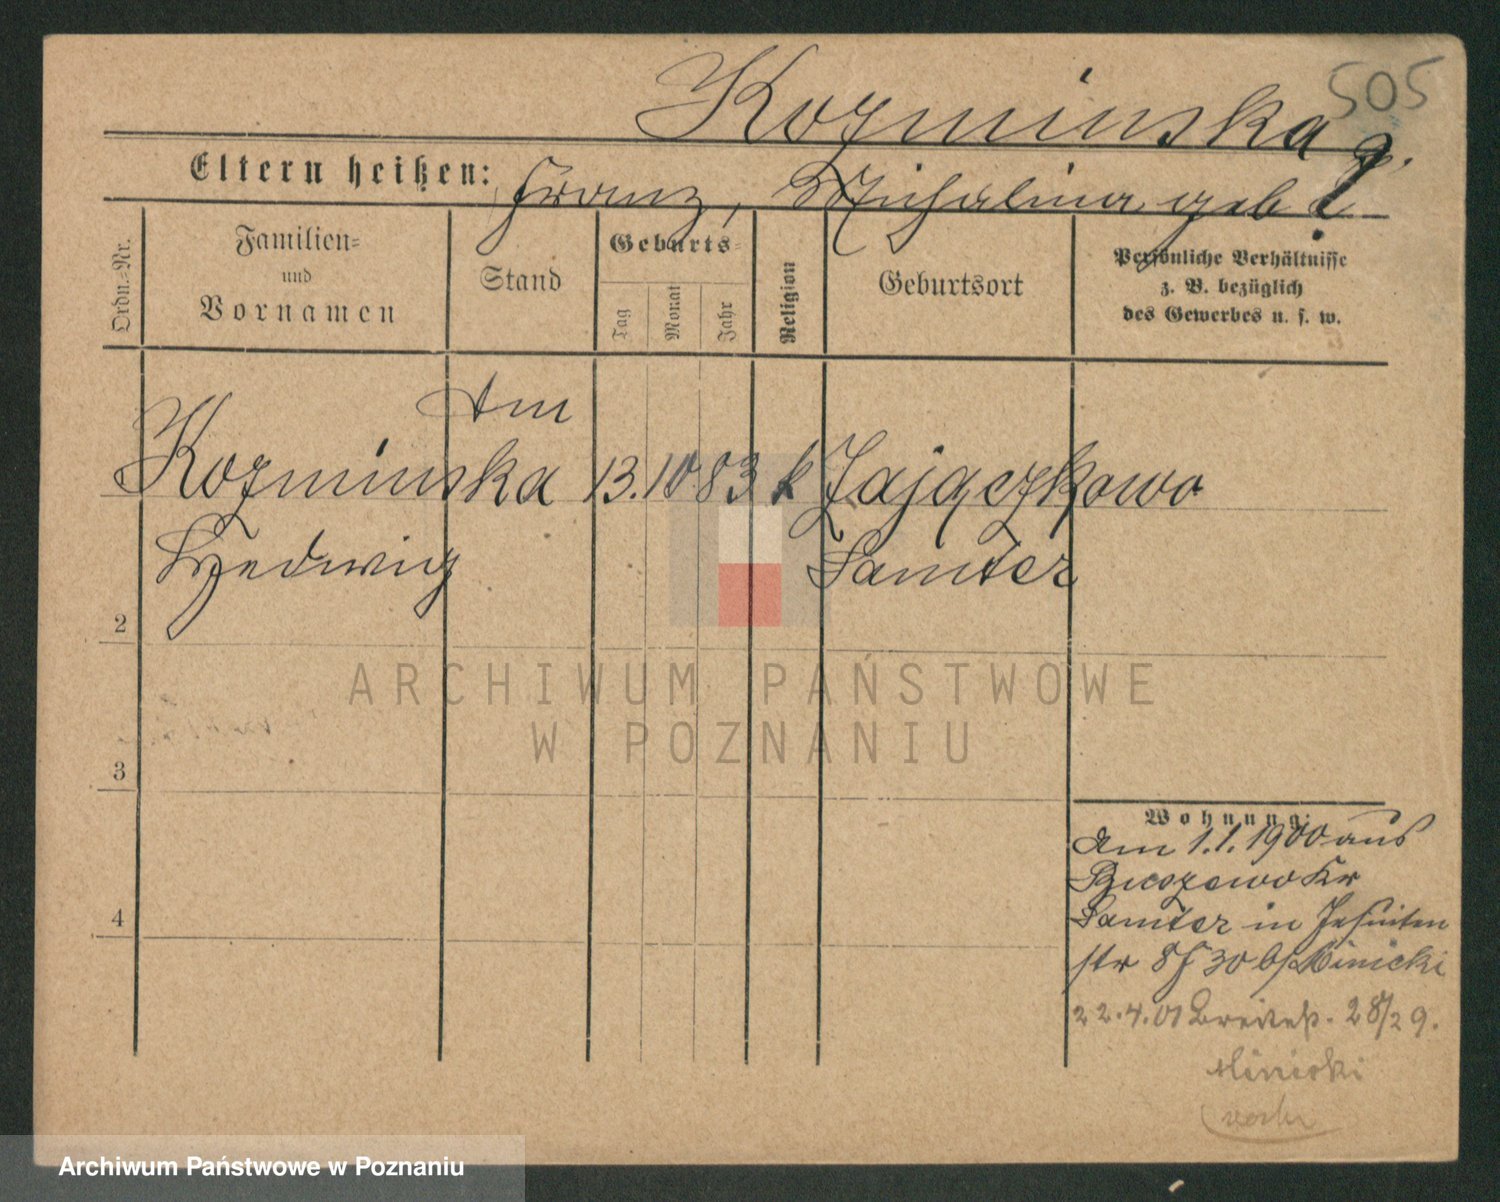 505
Kozminska
Eltern heißen: Franz, Michalina geb
Ordn.=Nr.
Familien=
und
Vornamen
Stand
Geburts=
Tag
Monat
Jahr
Religion
Geburtsort
Persönliche Verhältnisse
z. B. bezüglich
des Gewerbes u. s. w.
Kozminska 13. 10 83 k Zajączkowo
Hedwig Samter
2
3
4
ARCHIWUM PAŃSTWOWE
W POZNANIU
Wohnung:
Am 1.1.1900 aus
Buszewo Kr
Samter in Jesuiten
str 8 30 b/ Minicki
22.4.01 Breitestr. 28/29.
Minicki
Archiwum Państwowe w Poznaniu